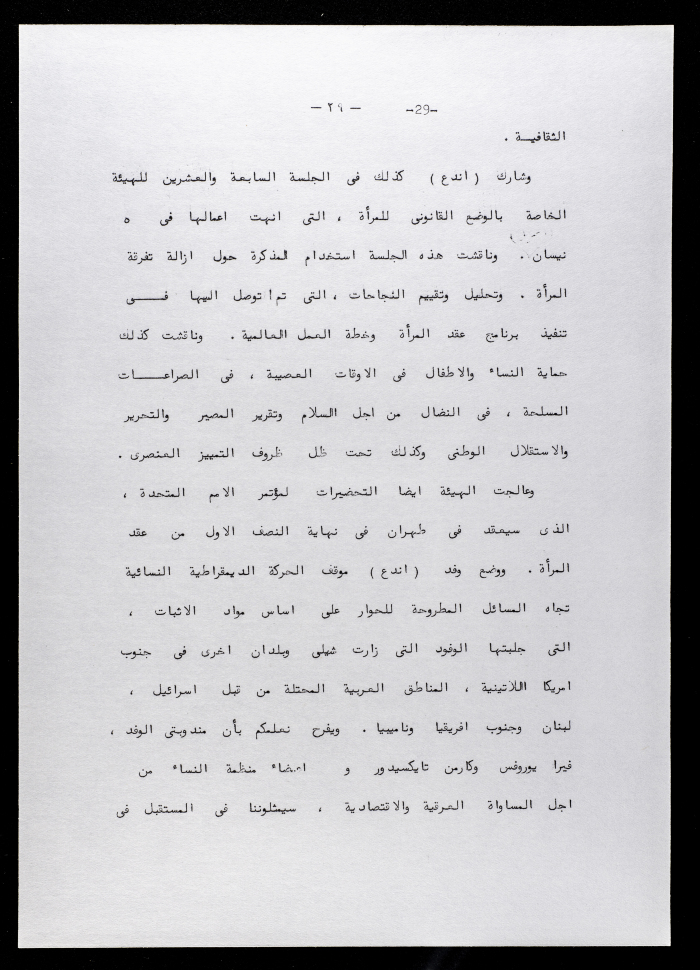 — ٢٩ — -29-
الثقافيــة .
وشارك ( اندع ) كذلك فى الجلسة السابعة والعشرين للهيئة
الخاصة بالوضع القانونى للمرأة ، التى انهت اعمالها فى ٥
نيسان . وناقشت هذه الجلسة استخدام المذكرة حول ازالة تفرقة
المرأة . وتحليل وتقييم النجاحات ، التى تم توصل اليها فــــى
تنفيذ برنامج عقد المرأة وخطة العمل العالمية . وناقشت كذلك
حماية النساء والاطفال فى الاوقات العصيبة ، فى الصراعـــــات
المسلحة ، فى النضال من اجل السلام وتقرير المصير والتحرير
والاستقلال الوطنى وكذلك تحت ظل ظروف التمييز العنصرى .
وعالجت الهيئة ايضا التحضيرات لمؤتمر الامم المتحدة ،
الذى سيعقد فى طهران فى نهاية النصف الاول من عقد
المرأة . ووضع وفد ( اندع ) موقف الحركة الديمقراطية النسائية
تجاه المسائل المطروحة للحوار على اساس مواد الاثبات ،
التى جلبتها الوفود التى زارت شيلى وبلدان اخرى فى جنوب
امريكا اللاتينية ، المناطق العربية المحتلة من قبل اسرائيل ،
لبنان وجنوب افريقيا وناميبيا . ويفرح نعلمكم بأن مندوبتى الوفد ،
فيرا يوروفس وكارمن تايكسيدور و اعضاء منظمة النساء من
اجل المساواة العرقية والاقتصادية ، سيمثلوننا فى المستقبل فى